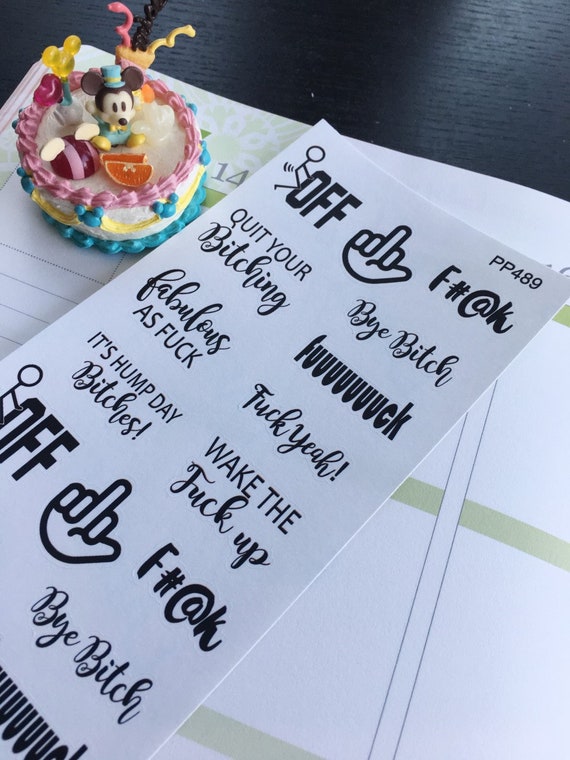 14
PP489
OFF
QUIT YOUR
Bitching
F#@k
fabulous
AS FUCK
Bye Bitch
fuuuuuuuck
IT'S HUMP DAY
Bitches!
Fuck Yeah!
WAKE THE
Fuck up
OFF
F#@k
Bye Bitch